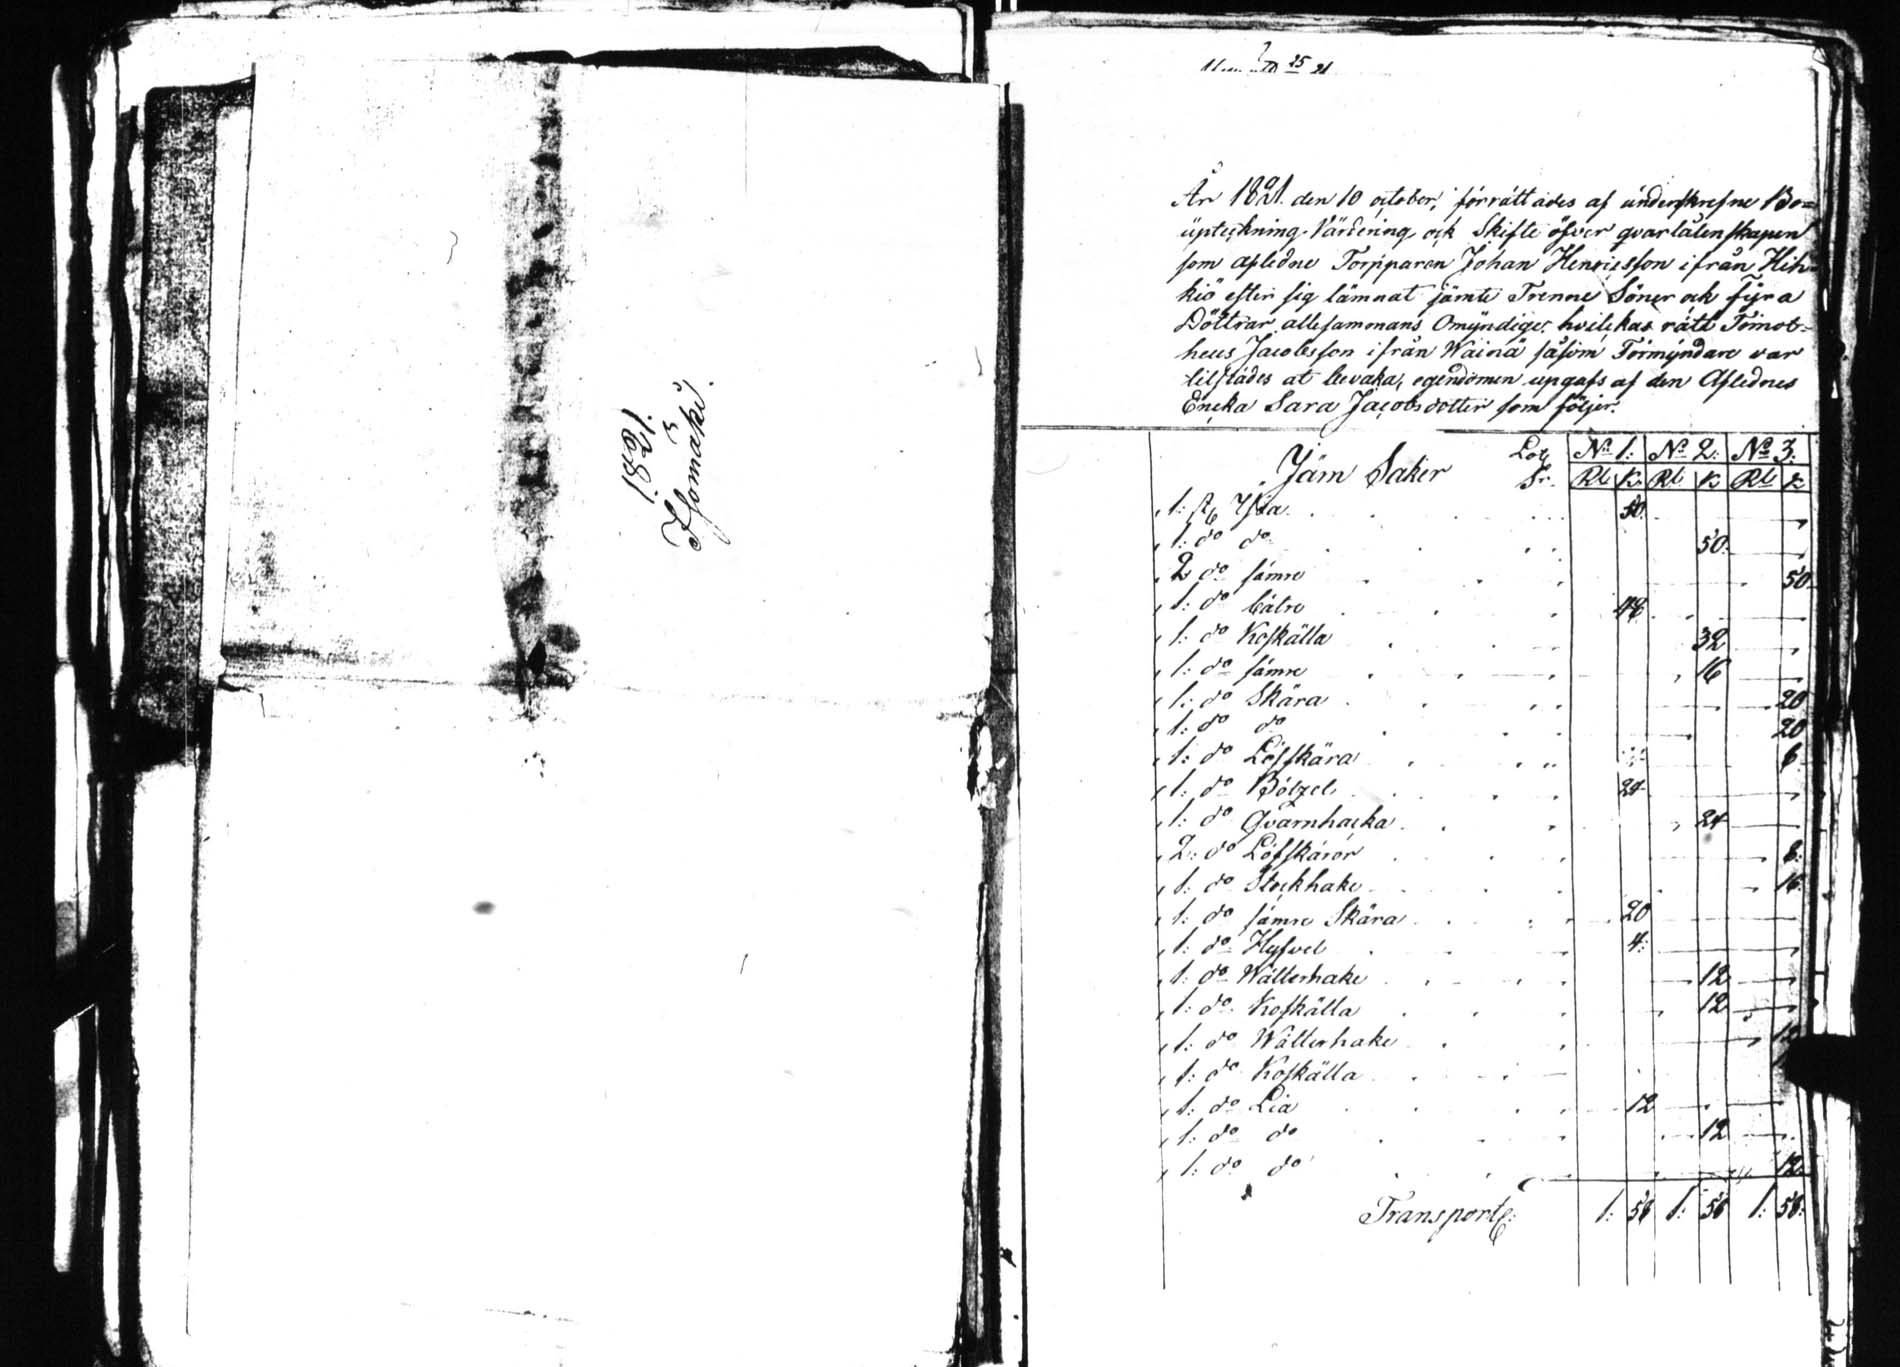 1821.
Isomäki.
25 21
År 1821. den 10 october, förrättades af underskrefne Bo=
upteckning, Värdering ock Skifte öfver qvarlåtenskapen
som afledne Torpparen Johan Henricsson ifrån Hih=
kiö efter sig lämnat jämte Trenne Söner ock fyra
Döttrar allesammans Omyndige, hvilckas rätt Timot=
heus Jacobsson ifrån Wainä såsom Förmyndare var
tilstädes at bevaka, egendomen upgafs af den Aflednes
Encka Sara Jacobsdotter som följer.
Järn Saker Lot Sr. No 1: No 2: No 3:
Rl K Rl K Rl K
1: st Yxa 50.
1: do do 50.
2 do sämre 50.
1: do bätre 48
1: do Koskälla 32
1: do sämre 16
1: do Skära 20
1: do do 20
1: do Löfskära 6
1: do Bölzel 24
1: do Qvarnhacka 24
2: do Löfskäror 8:
1: do Stockhake 16:
1: do sämre Skära 20
1: do Hyfvel 4:
1: do Wälterhake 12
1: do Koskälla 12
1: do Wälterhake 12
1: do Koskälla
1: do Lia 12
1: do do 12
1: do do 12.
Transporte: 1: 56 1: 56 1: 56: